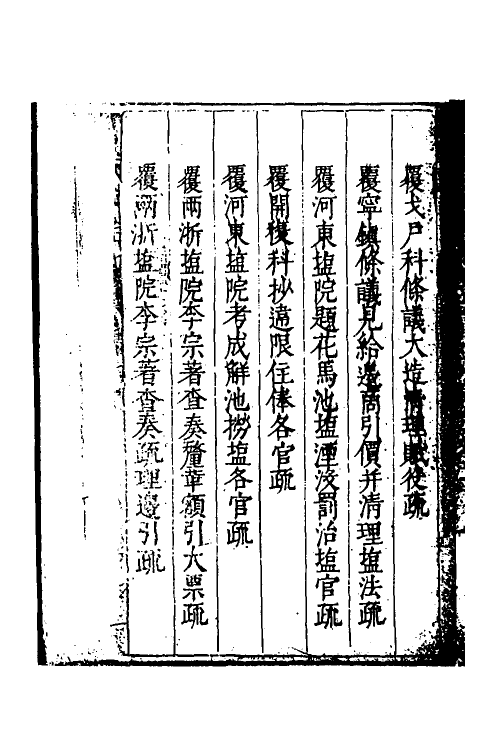 覆戈戸科條議大造清理賦役疏
覆寧鎮條議見給邊商引價并清理塩法疏
覆河東塩院題花馬池塩湮沒罰治塩官疏
覆開復科抄違限住俸各官疏
覆河東塩院考成觧池撈塩各官疏
覆兩浙塩院李宗著查奏釐革額引大票疏
覆兩浙塩院李宗著查奏疏理邊引疏